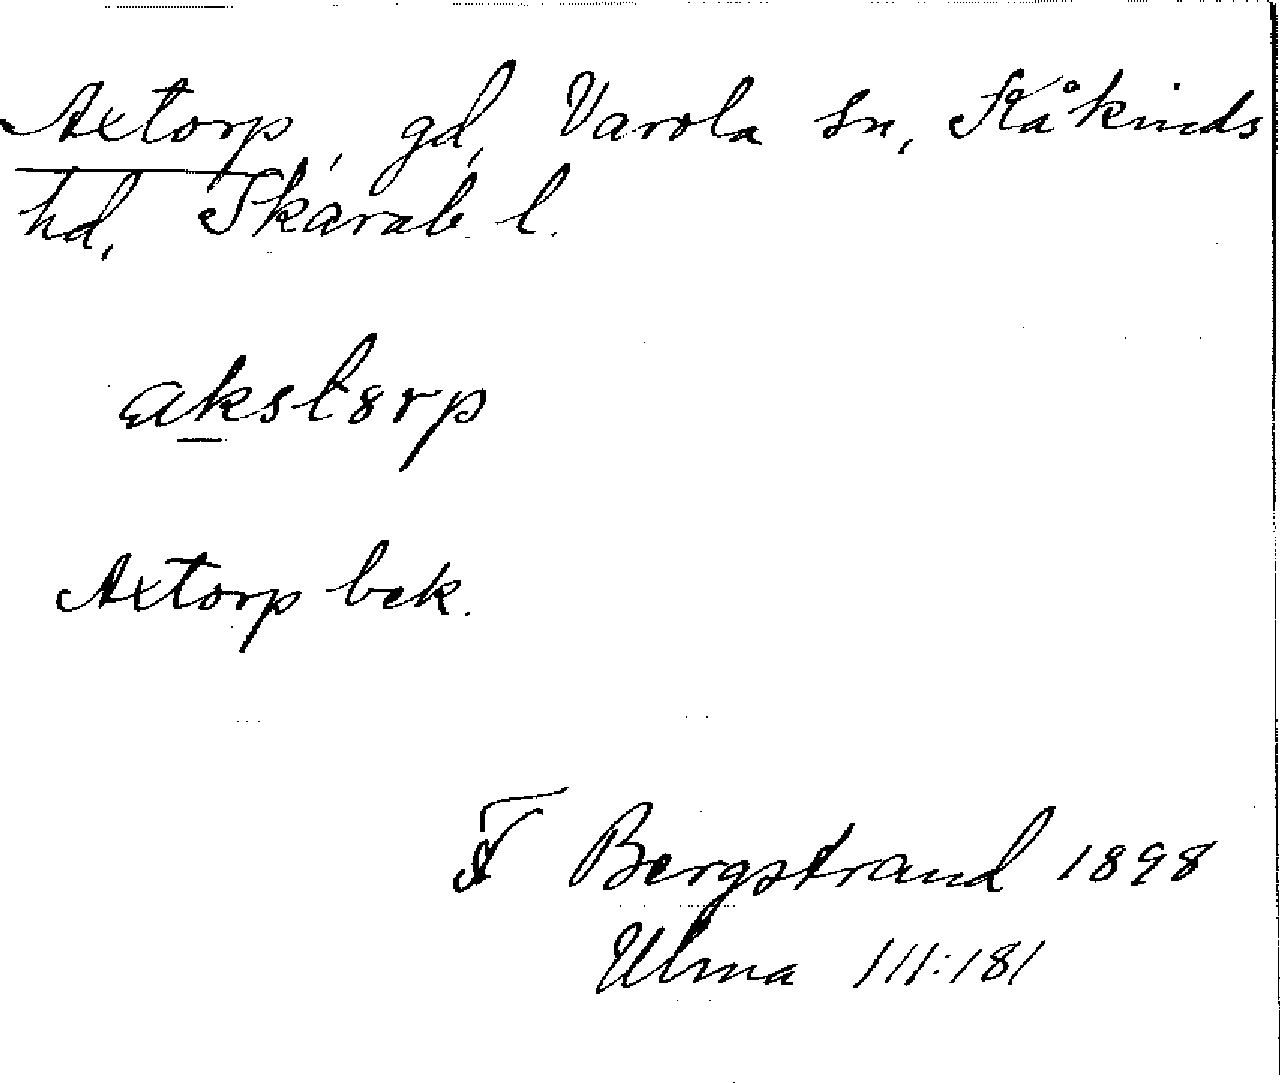 Axtorp, gd, Varola sn, Kåkinds
hd, Skarab. l.
akstorp
Axtorp bek.
F Bergstrand 1898
Ulma 111:181